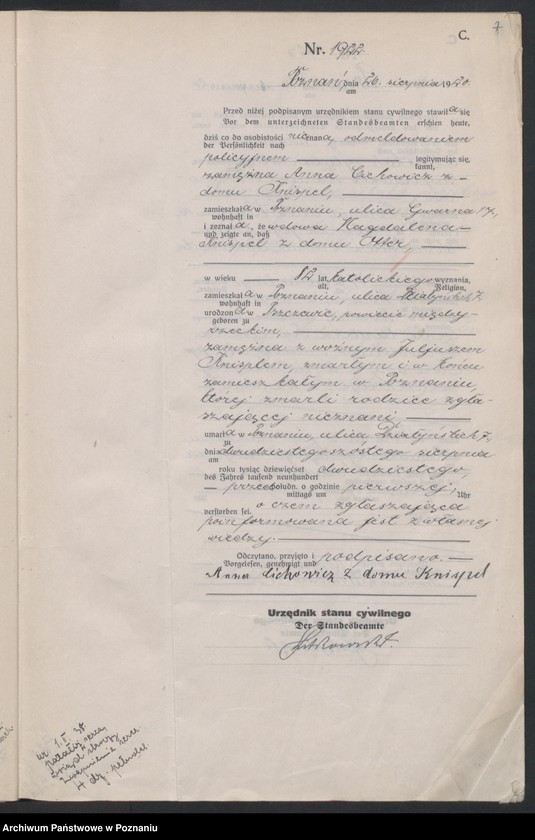 7
C.
Nr. 1922.
Poznań, dnia 26. sierpnia 1920.
am
Przed niżej podpisanym urzędnikiem stanu cywilnego stawiła się
Vor dem unterzeichneten Standesbeamten erschien heute,
dziś co do osobistości nieznana, odmeldowaniem
der Persönlichkeit nach
policyjnem legitymując się,
kannt,
zamężna Anna Cichowicz z
domu Knispel,
zamieszkała w Poznaniu, ulica Gwarna 17,
wohnhaft in
i zeznała, że wdowa Magdalena
und zeigte an, daß
Knispel z domu Otter,
w wieku 82 lat, katolickiego wyznania,
alt, Religion,
zamieszkała w Poznaniu, ulica Działyńskich 7,
wohnhaft in
urodzona w Pszczewie, powiecie między-
geboren zu
rzeckim,
zamężna z woźnym Juljuszem
Knisplem, zmarłym i w końcu
zamieszkałym w Poznaniu,
której zmarli rodzice zgła-
szającej nieznani,
umarła w Poznaniu, ulica Działyńskich 7,
zu
dnia dwudziestego szóstego sierpnia
am
roku tysiąc dziewięćset dwudziestego,
des Jahres tausend neunhundert
przed połudn. o godzinie pierwszej,
mittags um Uhr
o czem zgłaszająca
verstorben sei.
poinformowana jest z własnej
wiedzy.
Odczytano, przyjęto i podpisano.
Vorgelesen, genehmigt und
Anna Cichowicz z domu Knispel
Urzędnik stanu cywilnego
Der Standesbeamte
Archiwum Państwowe w Poznaniu